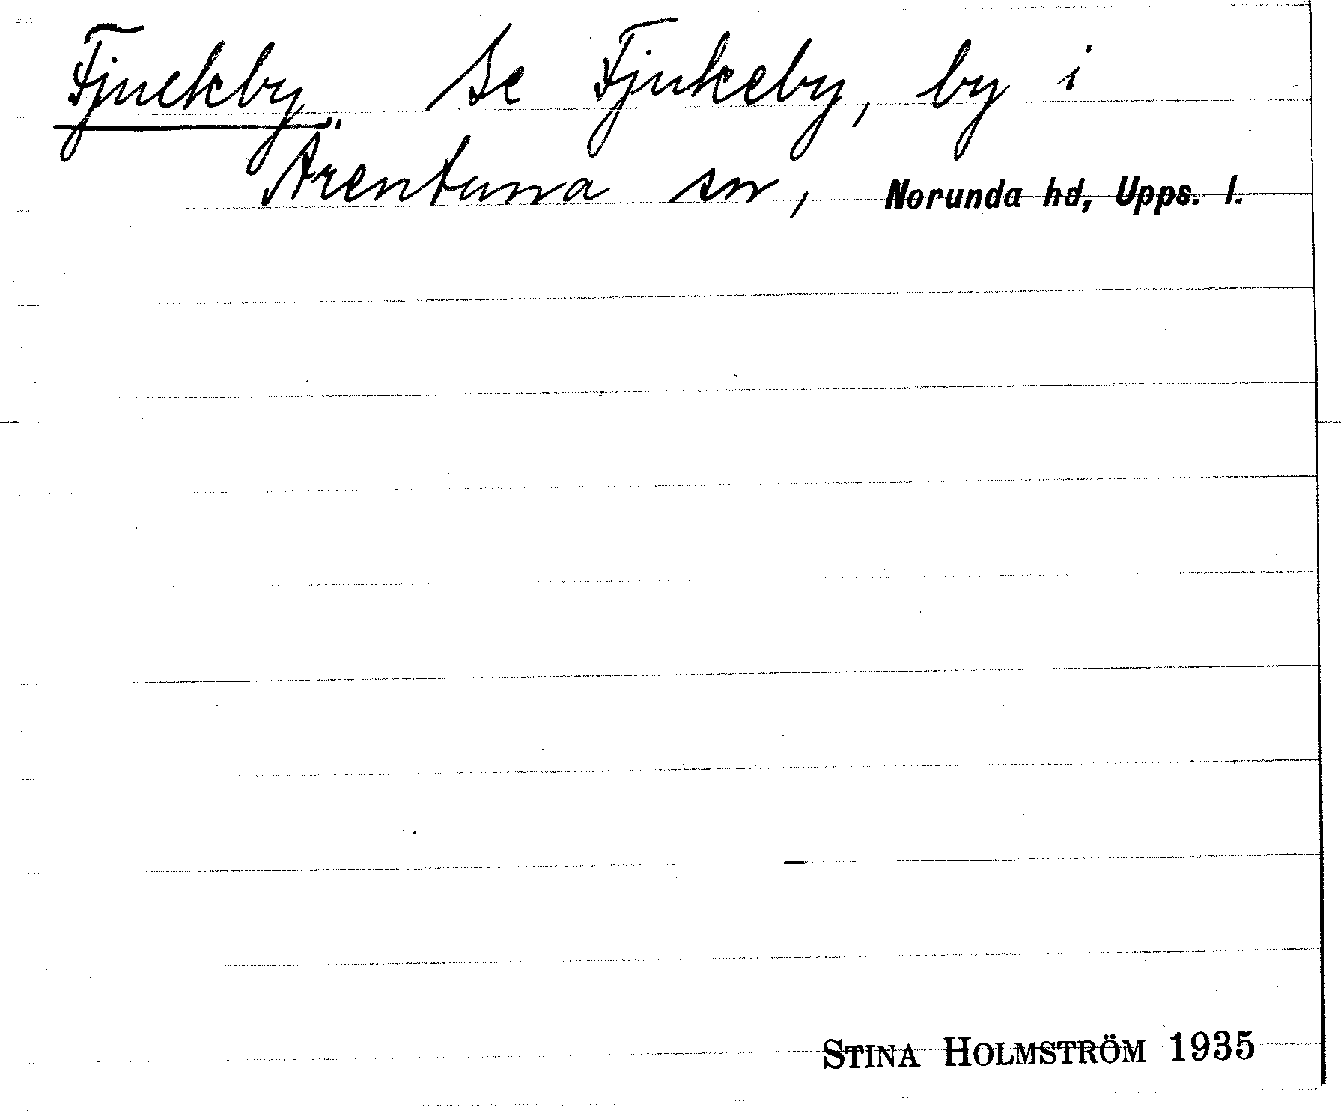 Fjuckby Se Fjukeby, by i
Ärentuna sn, Norunda hd, Upps. l.
STINA HOLMSTRÖM 1935